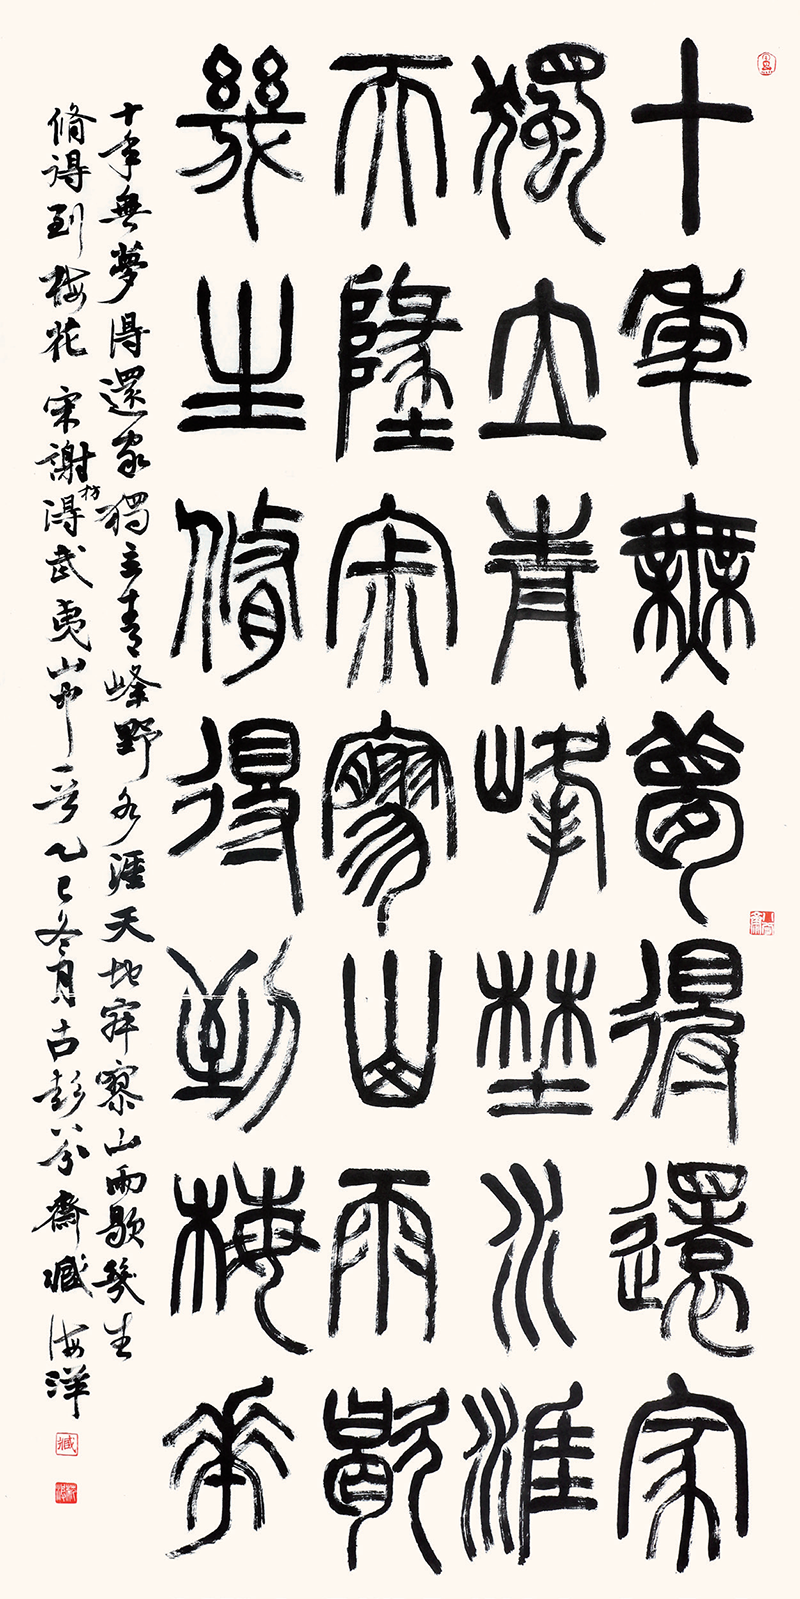 十年無夢得還家
獨立青峰埜水涯
天隆宋寥山雨歇
幾生脩得到梅華
十年無夢得還家獨立青峰野水涯天地寂寥山雨歇幾生
脩得到梅花 宋謝枋得武夷山中一首乙巳冬月古彭八分齋臧海洋